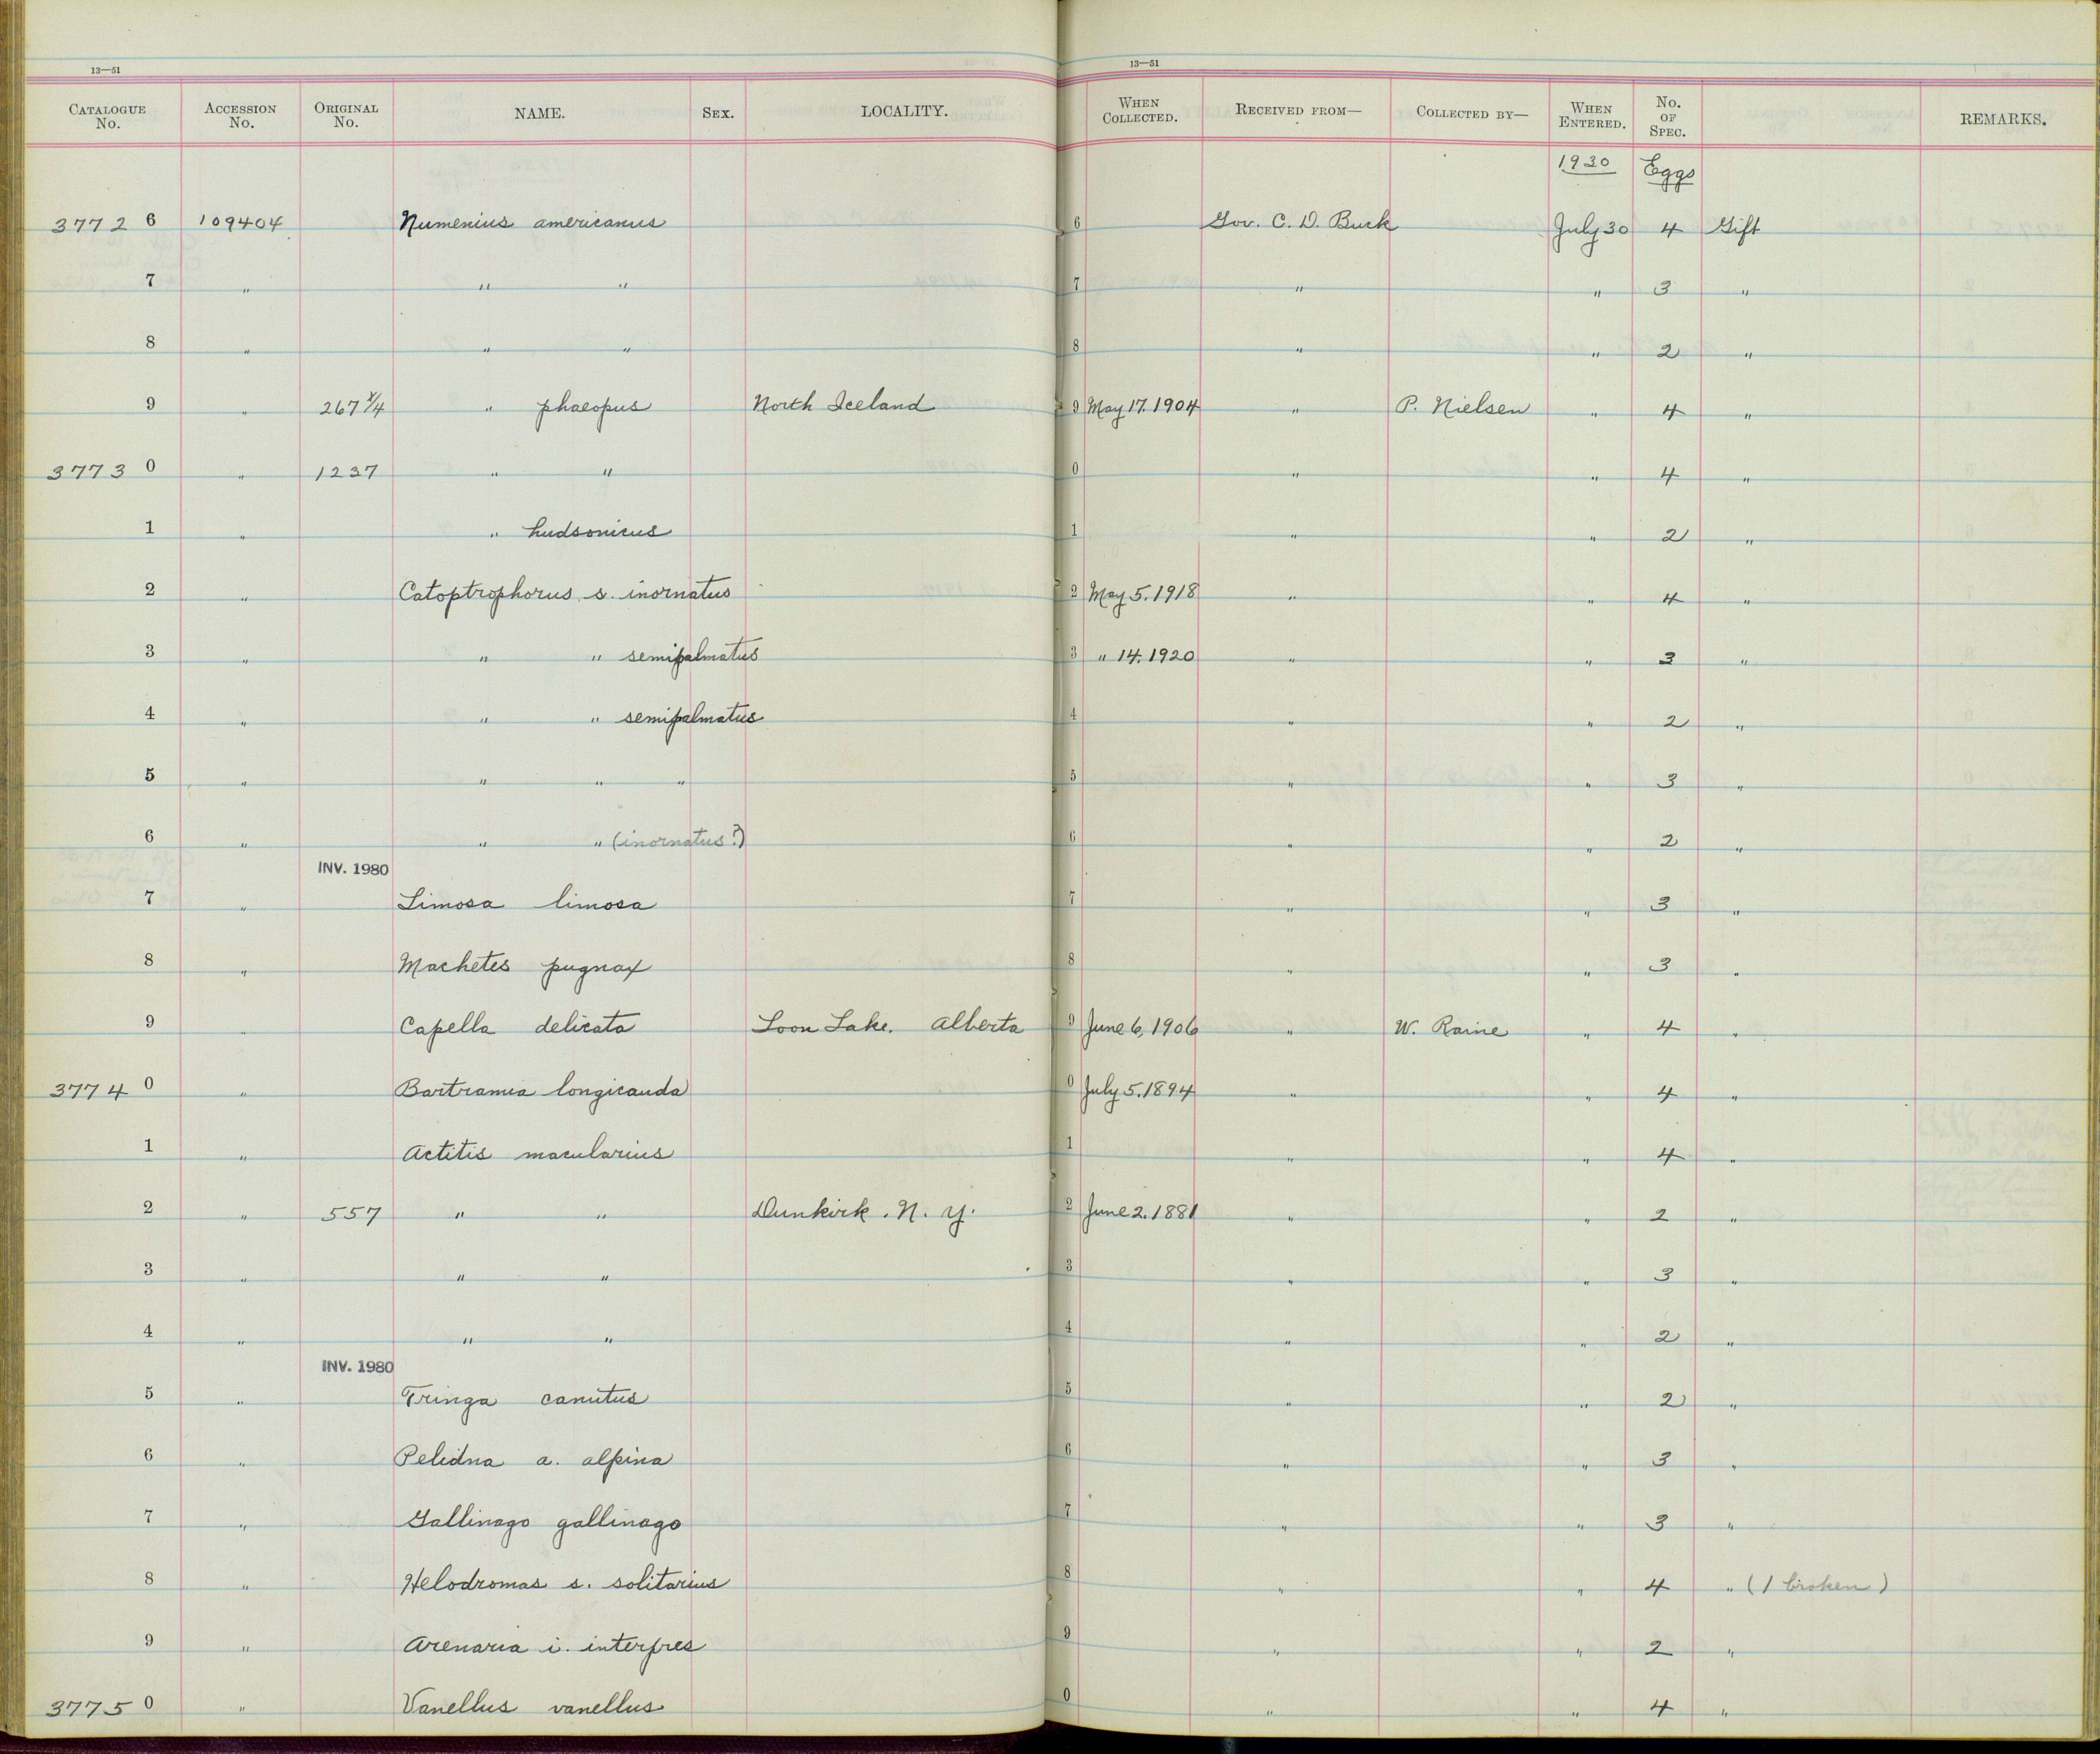 13—51 13—51
CATALOGUE No. ACCESSION No. ORIGINAL No. NAME. SEX. LOCALITY. WHEN COLLECTED. RECEIVED FROM— COLLECTED BY— WHEN ENTERED. No. OF SPEC. REMARKS.
1930 Eggs
3772 6 109404 Numenius americanus 6 Gov. C. D. Buck July 30 4 Gift
7 " " " 7 " " 3 "
8 " " " 8 " " 2 "
9 " 267 4/4 " phaeopus North Iceland 9 May 17. 1904 " P. Nielsen " 4 "
3773 0 " 1237 " " 0 " " 4 "
1 " " hudsonicus 1 " " 2 "
2 " Catoptrophorus s. inornatus 2 May 5. 1918 " " 4 "
3 " " " semipalmatus 3 " 14. 1920 " " 3 "
4 " " " semipalmatus 4 " " 2 "
5 " " " " 5 " " 3 "
6 " " " (inornatus?) 6 " " 2 "
INV. 1980
7 " Limosa limosa 7 " " 3 "
8 " Machetes pugnax 8 " " 3 "
9 " Capella delicata Loon Lake. Alberta 9 June 6, 1906 " W. Raine " 4 "
3774 0 " Bartramia longicauda 0 July 5. 1894 " " 4 "
1 " Actitis macularius 1 " " 4 "
2 " 557 " " Dunkirk. N. Y. 2 June 2. 1881 " " 2 "
3 " " " 3 " " 3 "
4 " " " 4 " " 2 "
INV. 1980
5 " Tringa canutus 5 " " 2 "
6 " Pelidna a. alpina 6 " " 3 "
7 " Gallinago gallinago 7 " " 3 "
8 " Helodromas s. solitarius 8 " " 4 " (1 broken)
9 " Arenaria i. interpres 9 " " 2 "
3775 0 " Vanellus vanellus 0 " " 4 "